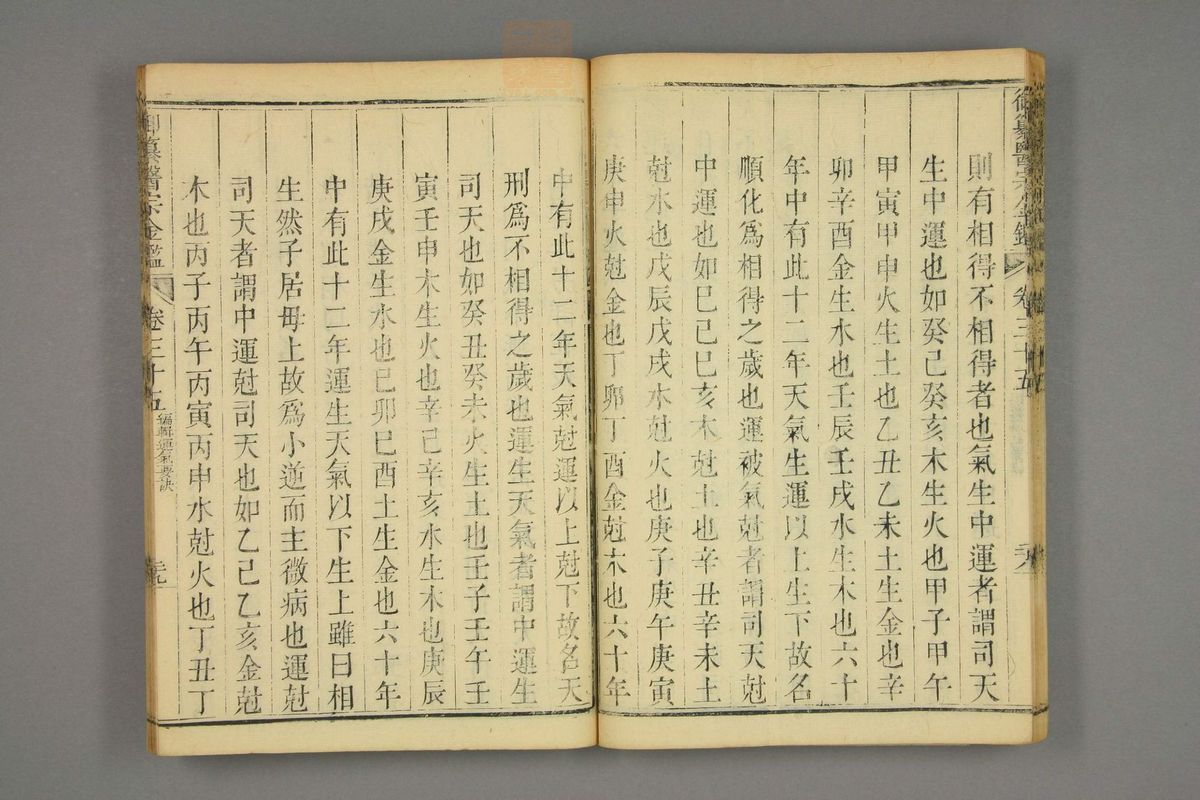 御纂醫宗金鑑 卷三十五 天
則有相得不相得者也氣生中運者謂司天
生中運也如癸已癸亥木生火也甲子甲午
甲寅甲申火生土也乙丑乙未土生金也辛
卯辛酉金生水也壬辰壬戌水生木也六十
年中有此十二年天氣生運以上生下故名
順化爲相得之歲也運被氣尅者謂司天尅
中運也如巳己巳亥木尅土也辛丑辛未土
尅水也戊辰戊戌水尅火也庚子庚午庚寅
庚申火尅金也丁卯丁酉金尅木也六十年
中有此十二年天氣尅運以上尅下故名天
刑爲不相得之歲也運生天氣者謂中運生
司天也如癸丑癸未火生土也壬子壬午壬
寅壬申木生火也辛己辛亥水生木也庚辰
庚戌金生水也巳卯巳酉土生金也六十年
中有此十二年運生天氣以下生上雖曰相
生然子居母上故爲小逆而主微病也運尅
司天者謂中運尅司天也如乙己乙亥金尅
木也丙子丙午丙寅丙申水尅火也丁丑丁
御纂醫宗金鑑 卷三十五 編輯運氣要訣 元